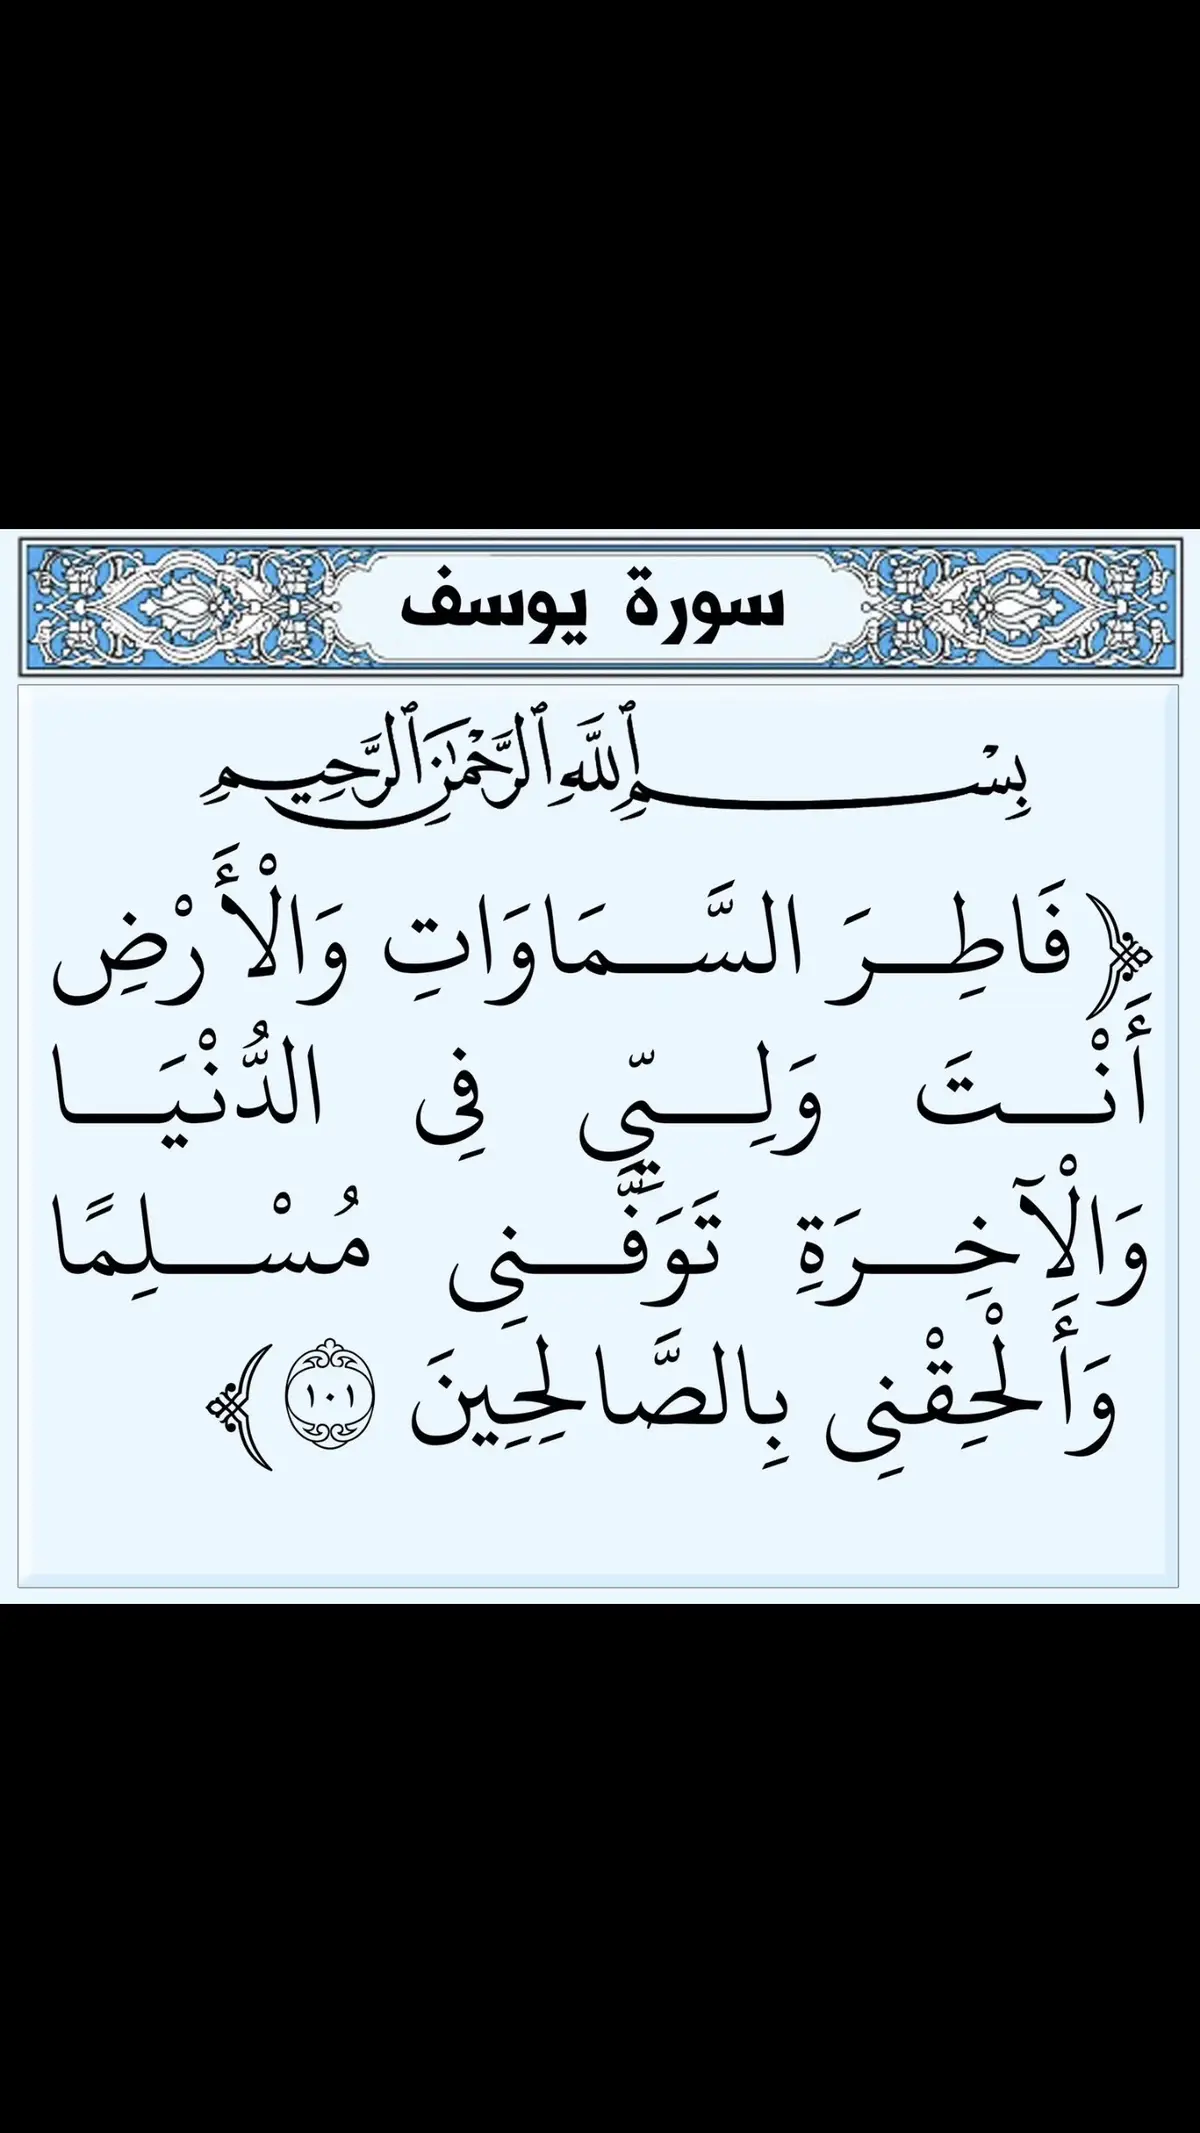 سورة يوسف
بِسْمِ ٱللَّهِ ٱلرَّحْمَٰنِ ٱلرَّحِيمِ
﴿فَاطِرَ السَّمَاوَاتِ وَالْأَرْضِ
أَنْتَ وَلِيِّي فِي الدُّنْيَا
وَالْآخِرَةِ تَوَفَّنِي مُسْلِمًا
وَأَلْحِقْنِي بِالصَّالِحِينَ ١٠١﴾